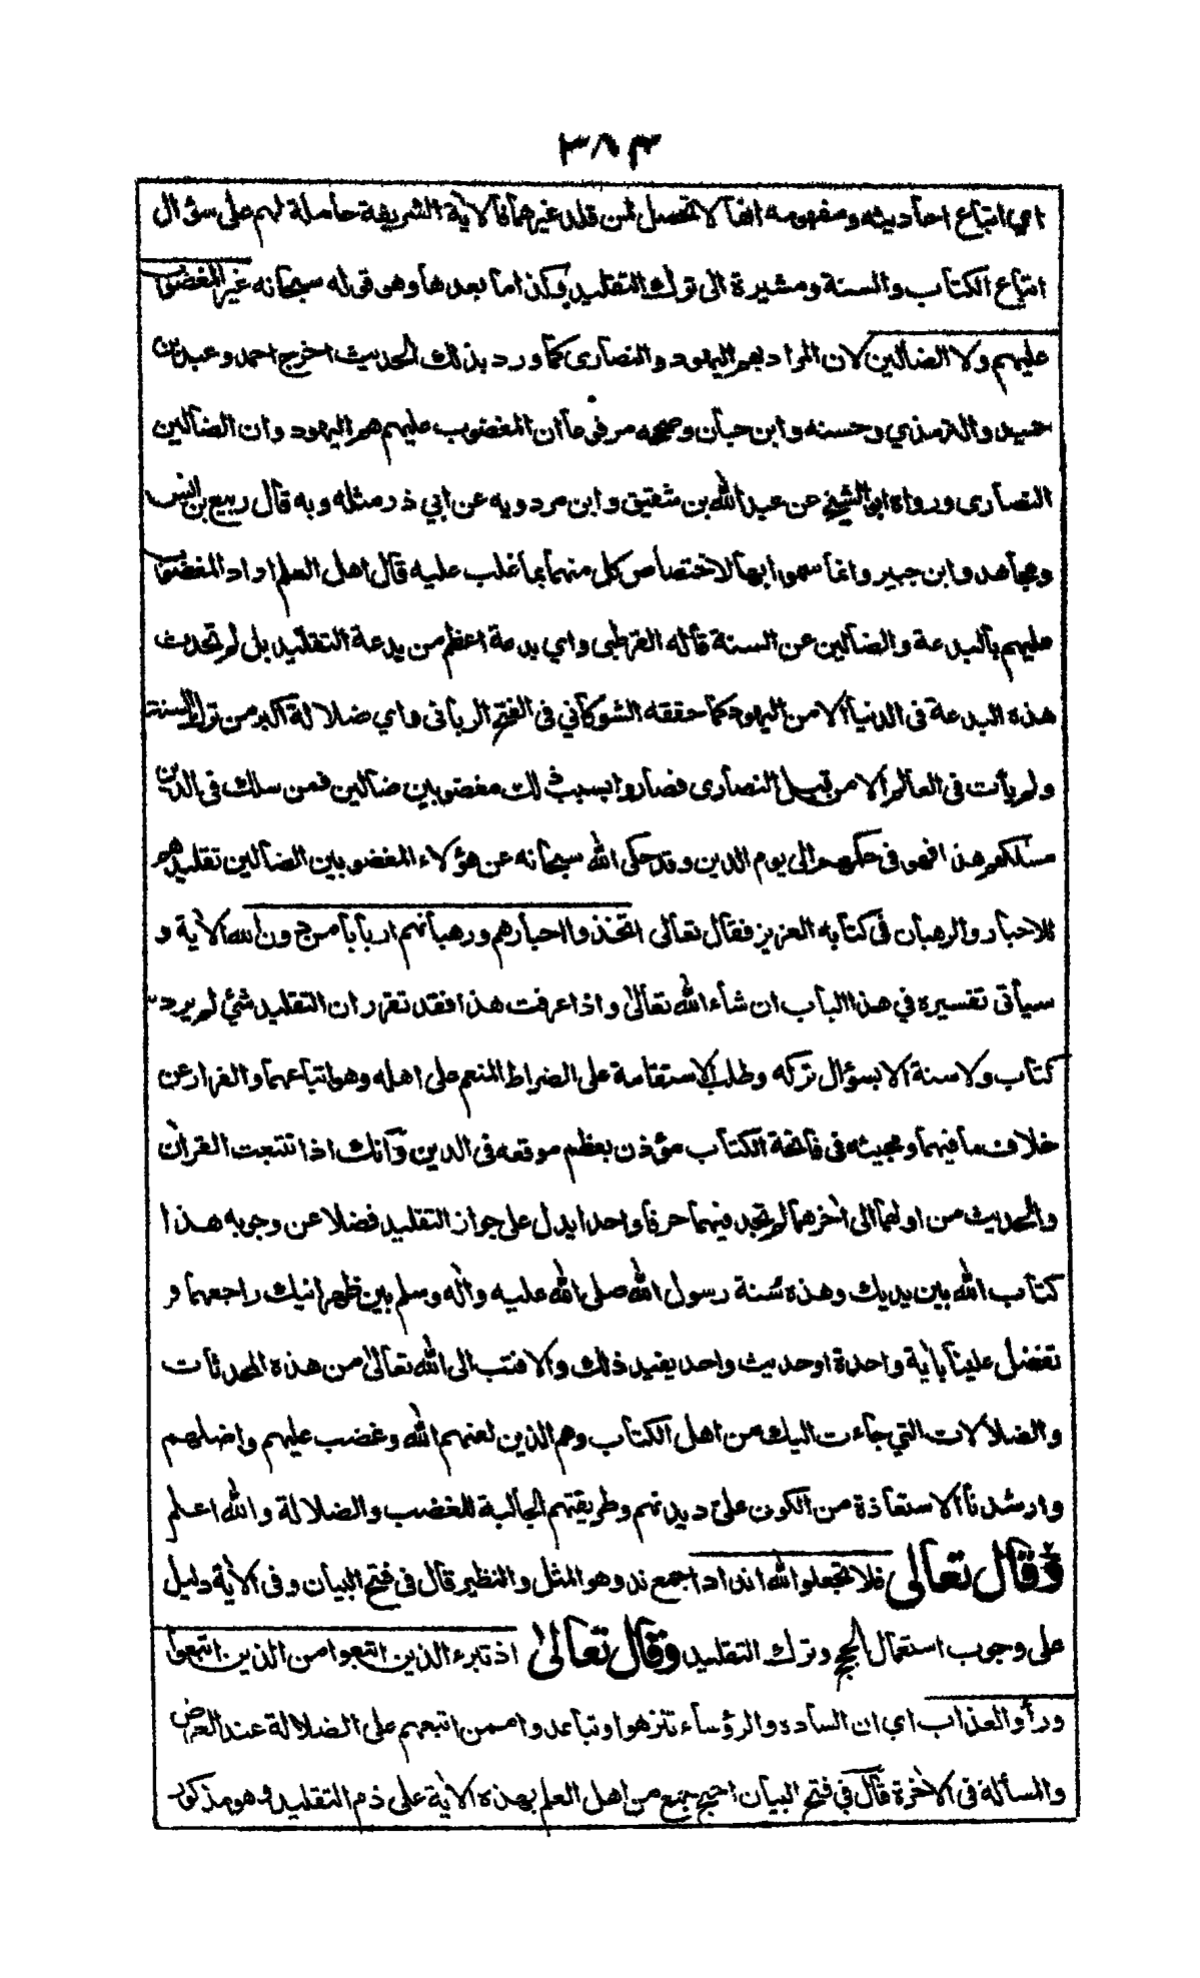 ٣٨٣
اي اتباع احاديثه ومفهومه انها لا تحصل لمن قلد غيرهما فالاية الشريفة حاملة لهم على سؤال
اتباع الكتاب والسنة ومشيرة الى ترك التقليد وكذا ما بعدها وهو قوله سبحانه غير المغضوب
عليهم ولا الضالين لان المراد بهم اليهود والنصارى كما ورد بذلك الحديث اخرج احمد وعبد بن
حميد والترمذي وحسنه وابن حبان وصححه مرفوعا ان المغضوب عليهم هم اليهود وان الضالين
النصارى ورواه ابو الشيخ عن عبد الله بن شقيق وابن مردويه عن ابي ذر مثله وبه قال ربيع بن انس
ومجاهد وابن جبير وانما سموا بها لاختصاص كل منهما بما غلب عليه قال اهل العلم اراد المغضوب
عليهم بالبدعة والضالين عن السنة قاله القرطبى واي بدعة اعظم من بدعة التقليد بل لم تحدث
هذه البدعة فى الدنيا الا من اليهود كما حققه الشوكاني فى الفتح الربانى واي ضلالة اكبر من ترك السنة
ولم يأت فى العالم الا من قبل النصارى فصاروا بسبب ذلك مغضوبين ضالين فمن سلك فى الدين
مسلكهم هذا فهو فى حكمهم الى يوم الدين وقد حكى الله سبحانه عن هؤلاء المغضوبين الضالين تقليدهم
للاحبار والرهبان فى كتابه العزيز فقال تعالى اتخذوا احبارهم ورهبانهم اربابا من دون الله الاية و
سيأتى تفسيره في هذا الباب ان شاء الله تعالى واذا عرفت هذا فقد تقرر ان التقليد شئ لم يرد به
كتاب ولا سنة الا بسؤال تركه وطلب الاستقامة على الصراط المنعم على اهله وهو اتباعهما والفرار عن
خلاف ما فيهما ومجيئه فى فاتحة الكتاب مؤذن بعظم موقعه فى الدين وانك اذا تتبعت القران
والحديث من اولهما الى اخرهما لم تجد فيهما حرفا واحدا يدل على جواز التقليد فضلا عن وجوبه هذا
كتاب الله بين يديك وهذه سنة رسول الله صلى الله عليه واله وسلم بين ظهرانيك راجعهما و
تفضل علينا باية واحدة او حديث واحد يفيد ذلك والا فتب الى الله تعالى من هذه المحدثات
والضلالات التي جاءت اليك من اهل الكتاب وهم الذين لعنهم الله وغضب عليهم واضلهم
وارشدنا الاستعاذة من الكون على ديدنهم وطريقتهم الجالبة للغضب والضلالة والله اعلم
وقال تعالى فلا تجعلوا لله اندادا جمع ند وهو المثل والنظير قال فى فتح البيان وفى الاية دليل
على وجوب استعمال الحجج وترك التقليد وقال تعالى اذ تبرء الذين اتبعوا من الذين اتبعوا
ورأوا العذاب اي ان السادة والرؤساء تنزهوا وتباعدوا ممن اتبعهم على الضلالة عند العرض
والمسألة فى الاخرة قال في فتح البيان احتج جمع من اهل العلم بهذه الاية على ذم التقليد وهو مذكور